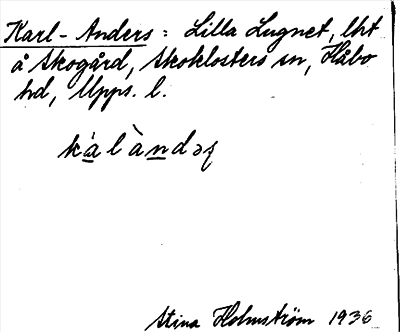 Karl-Anders: Lilla Lugnet, lht
å Skogård, Skoklosters sn, Håbo
hd, Upps. l.
ká̲lànd̲əʂ
Stina Holmström 1936